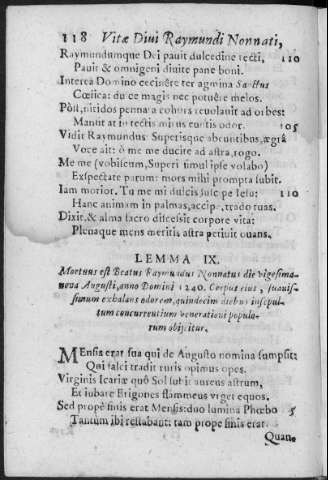 118 Vitæ Diui Raymundi Nonnati,
Raymundumque Dei pauit dulcedine tecti, 110
Pauit & omnigeni diuite pane boni.
Interea Domino cecinêre ter agmina Sanctus
Cœlica: dulce magis nec potuêre melos.
Pòst, nitidos penna ta cohors reuolauit ad orbes:
Manat at in tectis minus eustis odor. 105
Vidit Raymundus Superisque abeuntibus, ægrâ
Voce ait: ô me me ducite ad astra, rogo.
Me me (vobiscum, Superi simul ipse volabo)
Exspectate parum: mors mihi prompta subit.
Iam morior. Tu me mi dulcis suscipe Iesu: 110
Hanc animam in palmas, accipe, trado tuas.
Dixit, & alma sacro discessit corpore vita:
Plenaque mens meritis astra petiuit ouans.
LEMMA IX.
Mortuus est Beatus Raymundus Nonnatus die vigesima
nova Augusti, anno Domini 1240. Corpus eius, suauis-
simum exhalans odorem, quindecim diebus insepul-
tum concurrentium venerationi popula-
rum obijcitur.
Mensis erat sua qui de Augusto nomina sumpsit:
Qui falci tradit ruris opimus opes.
Virginis Icariæ quô Sol subit aureus astrum,
Et iubare Erigones flammeus vrget equos.
Sed propè finis erat Mensis: duo lumina Phœbo 5
Tantùm ibi restabant: tam prope finis erat.
Quan-